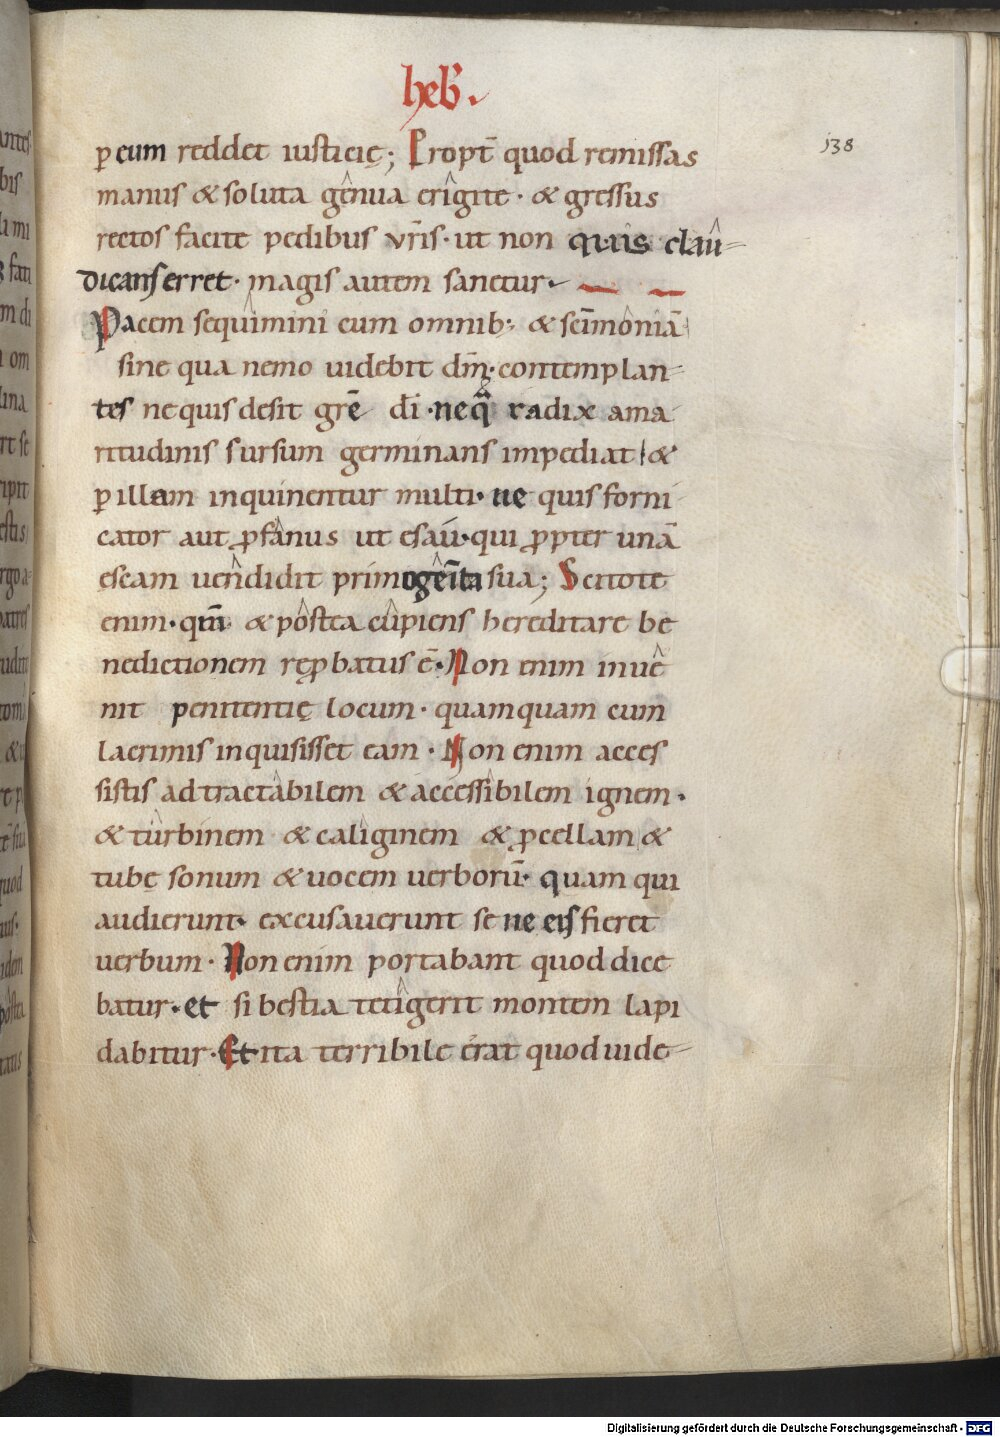 hebͬ.
138
ꝑ eum reddet iusticię; Propt̄ quod remissas
manus & soluta genua erigite · & gressus
rectos facite pedibus vr̄is · ut non quis clau-
dicans erret · magis autem sanetur ·
Pacem sequimini cum omnib; & sc̄imoniā
sine qua nemo uidebit dn̄m · contemplan-
tes ne quis desit grē dī · neq̄ radix ama
ritudinis sursum germinans impediat / &
ꝑ illam inquinentur multi · ne quis forni
cator aut ꝓfanus ut esaú · qui ꝓpter unā
escam uendidit primogēita sua; Scitote
enim · qm̄ & postea cupiens hereditare be
nedictionem ręꝓbatus ē · Non enim inue
nit penitentię locum · quamquam cum̄
lacrimis inquisisset eam · Non enim acces
sistis ad tractabilem & accessibilem ignem ·
& turbinem & caliginem & ꝓcellam &
tubę sonum & uocem uerborū · quam qui
audierunt · excusauerunt se ne eis fieret
uerbum · Non enim portabant quod dice
batur · et si bestia tetigerit montem lapi
dabitur · Et ita terribile erat quod uide-
Digitalisierung gefördert durch die Deutsche Forschungsgemeinschaft - DFG